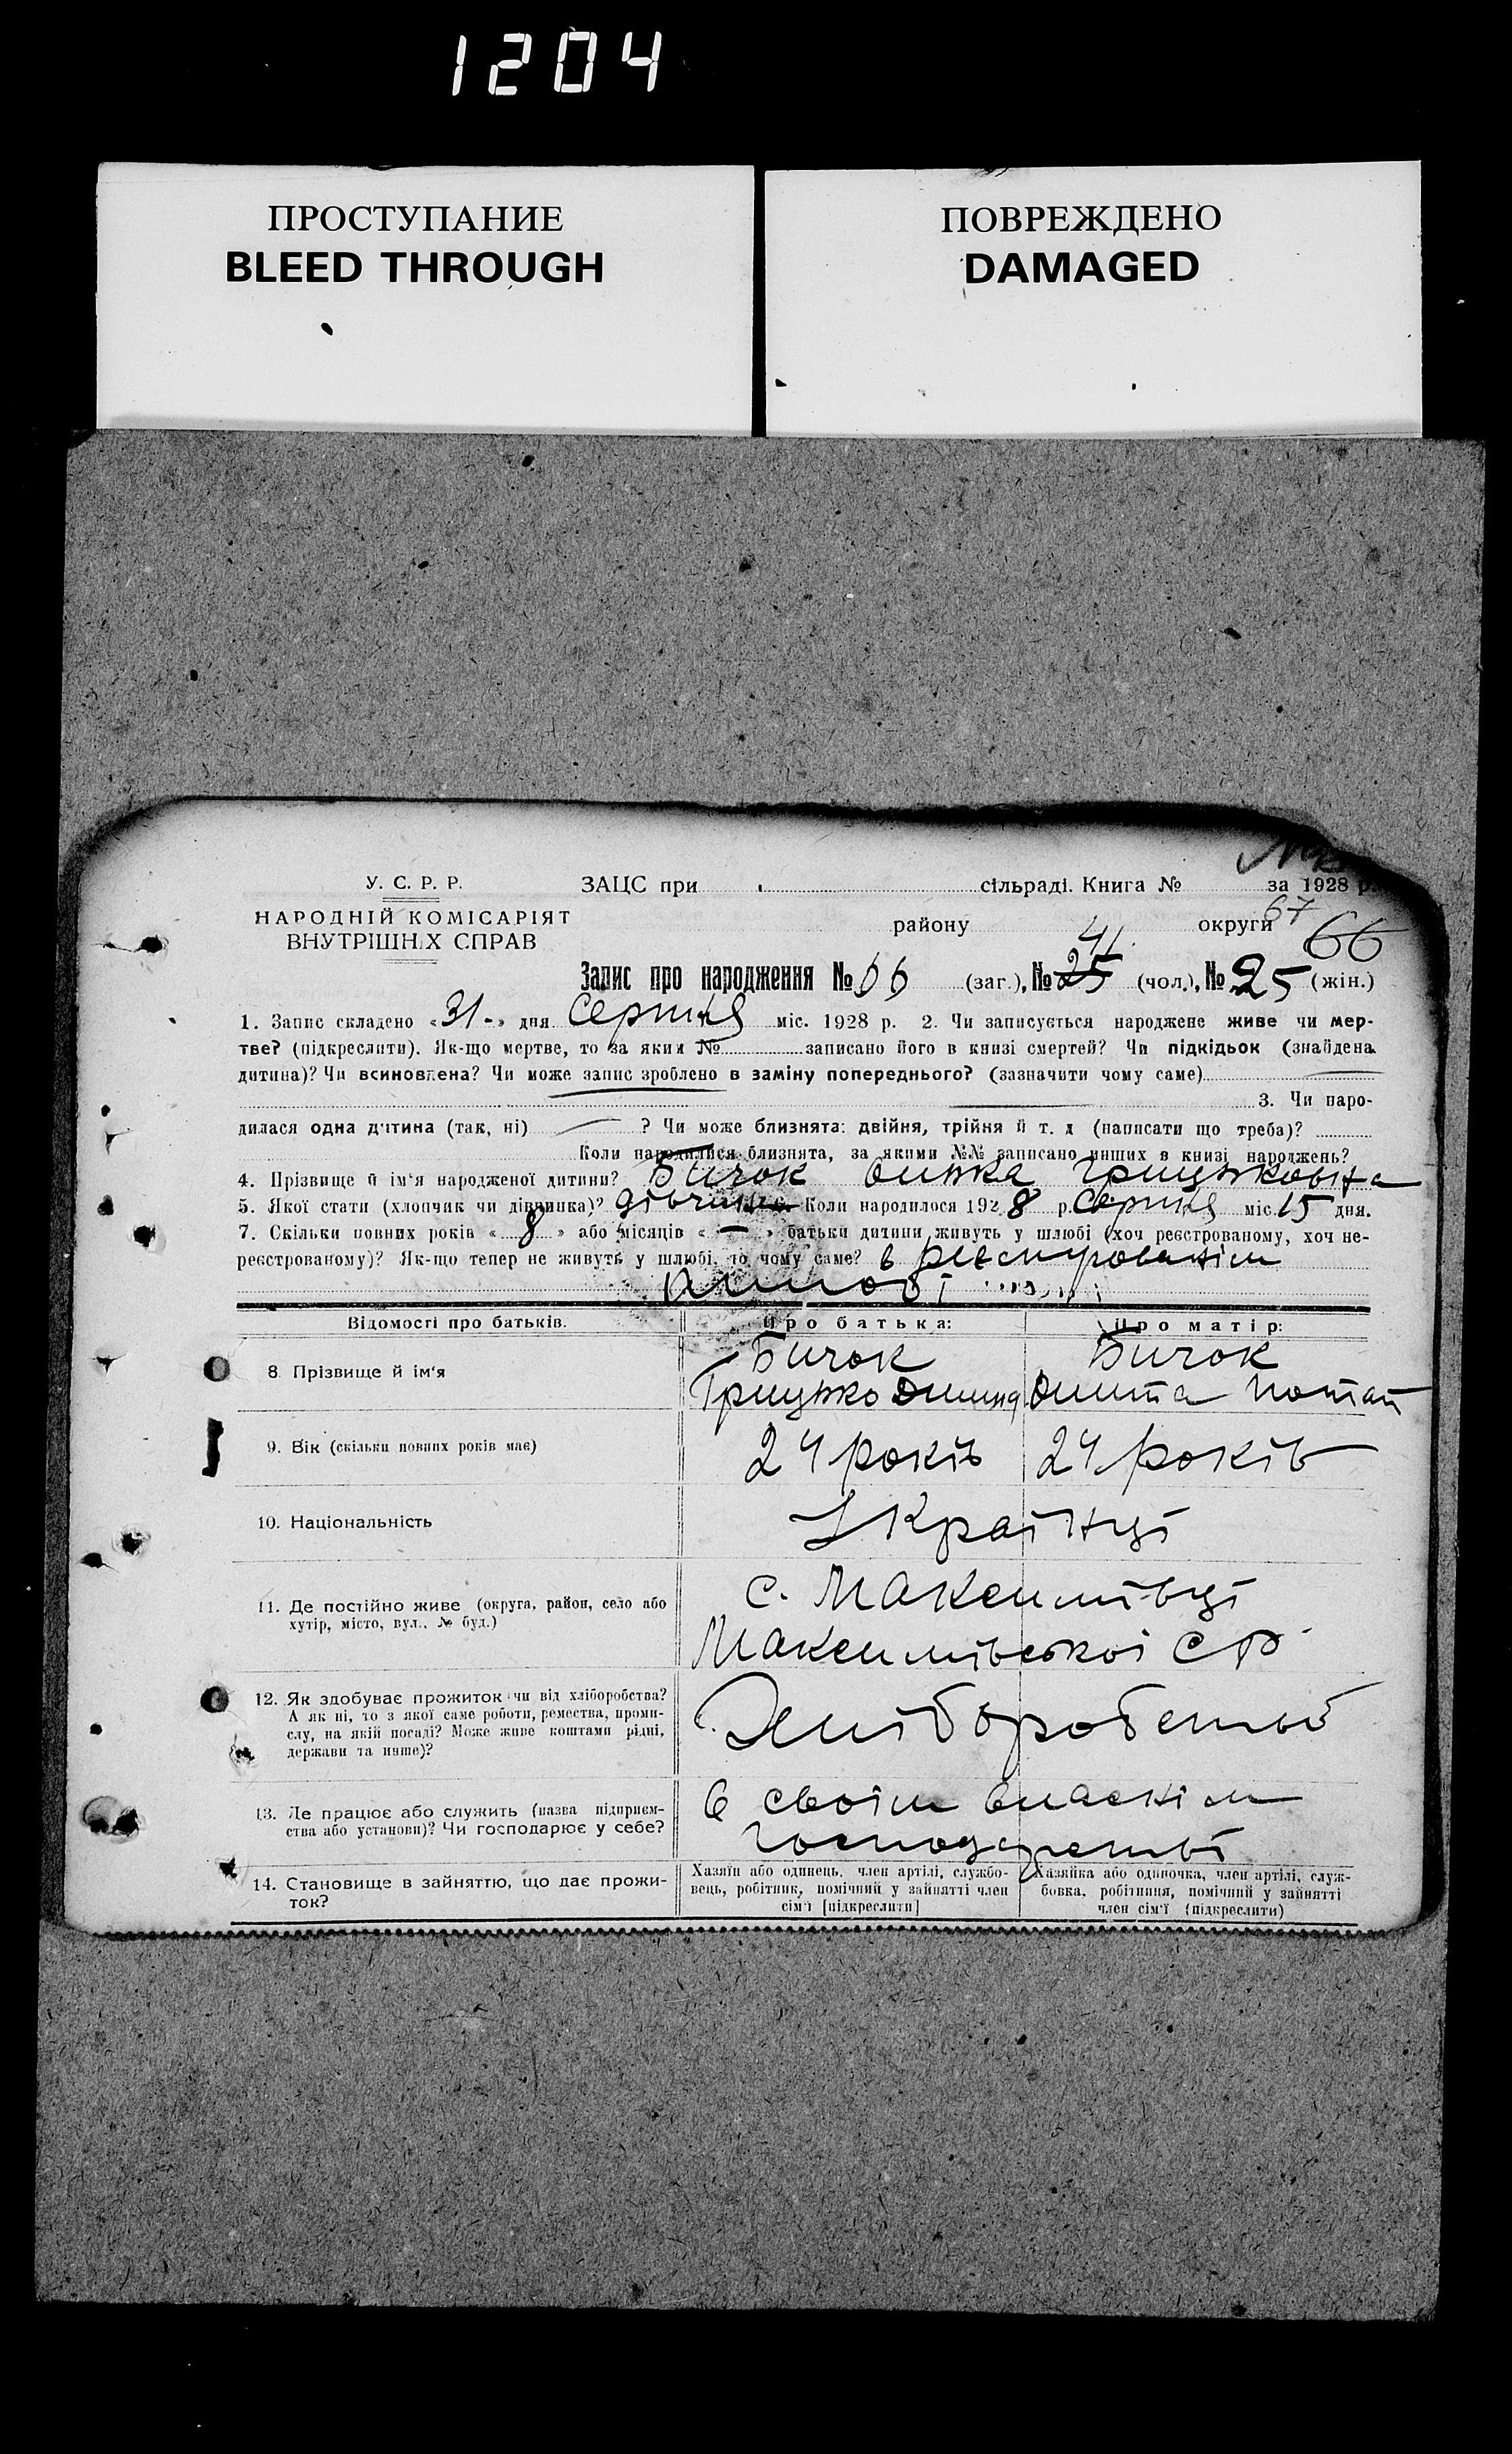 1204
ПРОСТУПАНИЕ
BLEED THROUGH
ПОВРЕЖДЕНО
DAMAGED
У. С. Р. Р.
НАРОДНІЙ КОМІСАРІЯТ
ВНУТРІШНІХ СПРАВ
ЗАЦС при сільраді. Книга № за 1928 р.
району округи 67 66
41
Запис про народження № 66 (заг.), № 25 (чол.), № 25 (жін.)
1. Запис складено «31-» дня Серпня міс. 1928 р. 2. Чи записується народжене живе чи мер-
тве? (підкреслити). Як-що мертве, то за яким № записано його в книзі смертей? Чи підкідьок (знайдена
дитина)? Чи всиновлена? Чи може запис зроблено в заміну попереднього? (зазначити чому саме)
3. Чи наро-
дилася одна дитина (так, ні) — ? Чи може близнята: двійня, трійня й т. д (написати що треба)?
Коли народилися близнята, за якими №№ записано инших в книзі народжень?
4. Прізвище й ім'я народженої дитини? Бичок Грицьковна
5. Якої стати (хлопчик чи дівчинка)? дівчинка Коли народилося 1928 р. Серпня міс. 15 дня.
7. Скільки повних років «8» або місяців «—» батьки дитини живуть у шлюбі (хоч реєстрованому, хоч не-
реєстрованому)? Як-що тепер не живуть у шлюбі, то чому саме? в реєстрованім
шлюбі
Відомості про батьків. Про батька: Про матір:
8. Прізвище й ім'я
Бичок Бичок
Грицько Потап
9. Вік (скільки повних років має) 24 років 24 років
10. Національність Українці
11. Де постійно живе (округа, район, село або
хутір, місто, вул., № буд.)
с. Максимівці
Максимівської СР
12. Як здобуває прожиток чи від хліборобства?
А як ні, то з якої саме роботи, ремества, проми-
слу, на якій посаді? Може живе коштами рідні,
держави та инше)?
Хліборобство
13. Де працює або служить (назва підприєм-
ства або установи)? Чи господарює у себе?
в своїм власнім
господарстві
14. Становище в зайняттю, що дає прожи-
ток?
Хазяїн або одинець, член артілі, службо-
вець, робітник, помічний у зайнятті член
сім'ї [підкреслити]
Хазяйка або одиночка, член артілі, служ-
бовка, робітниця, помічний у зайнятті
член сім'ї (підкреслити)